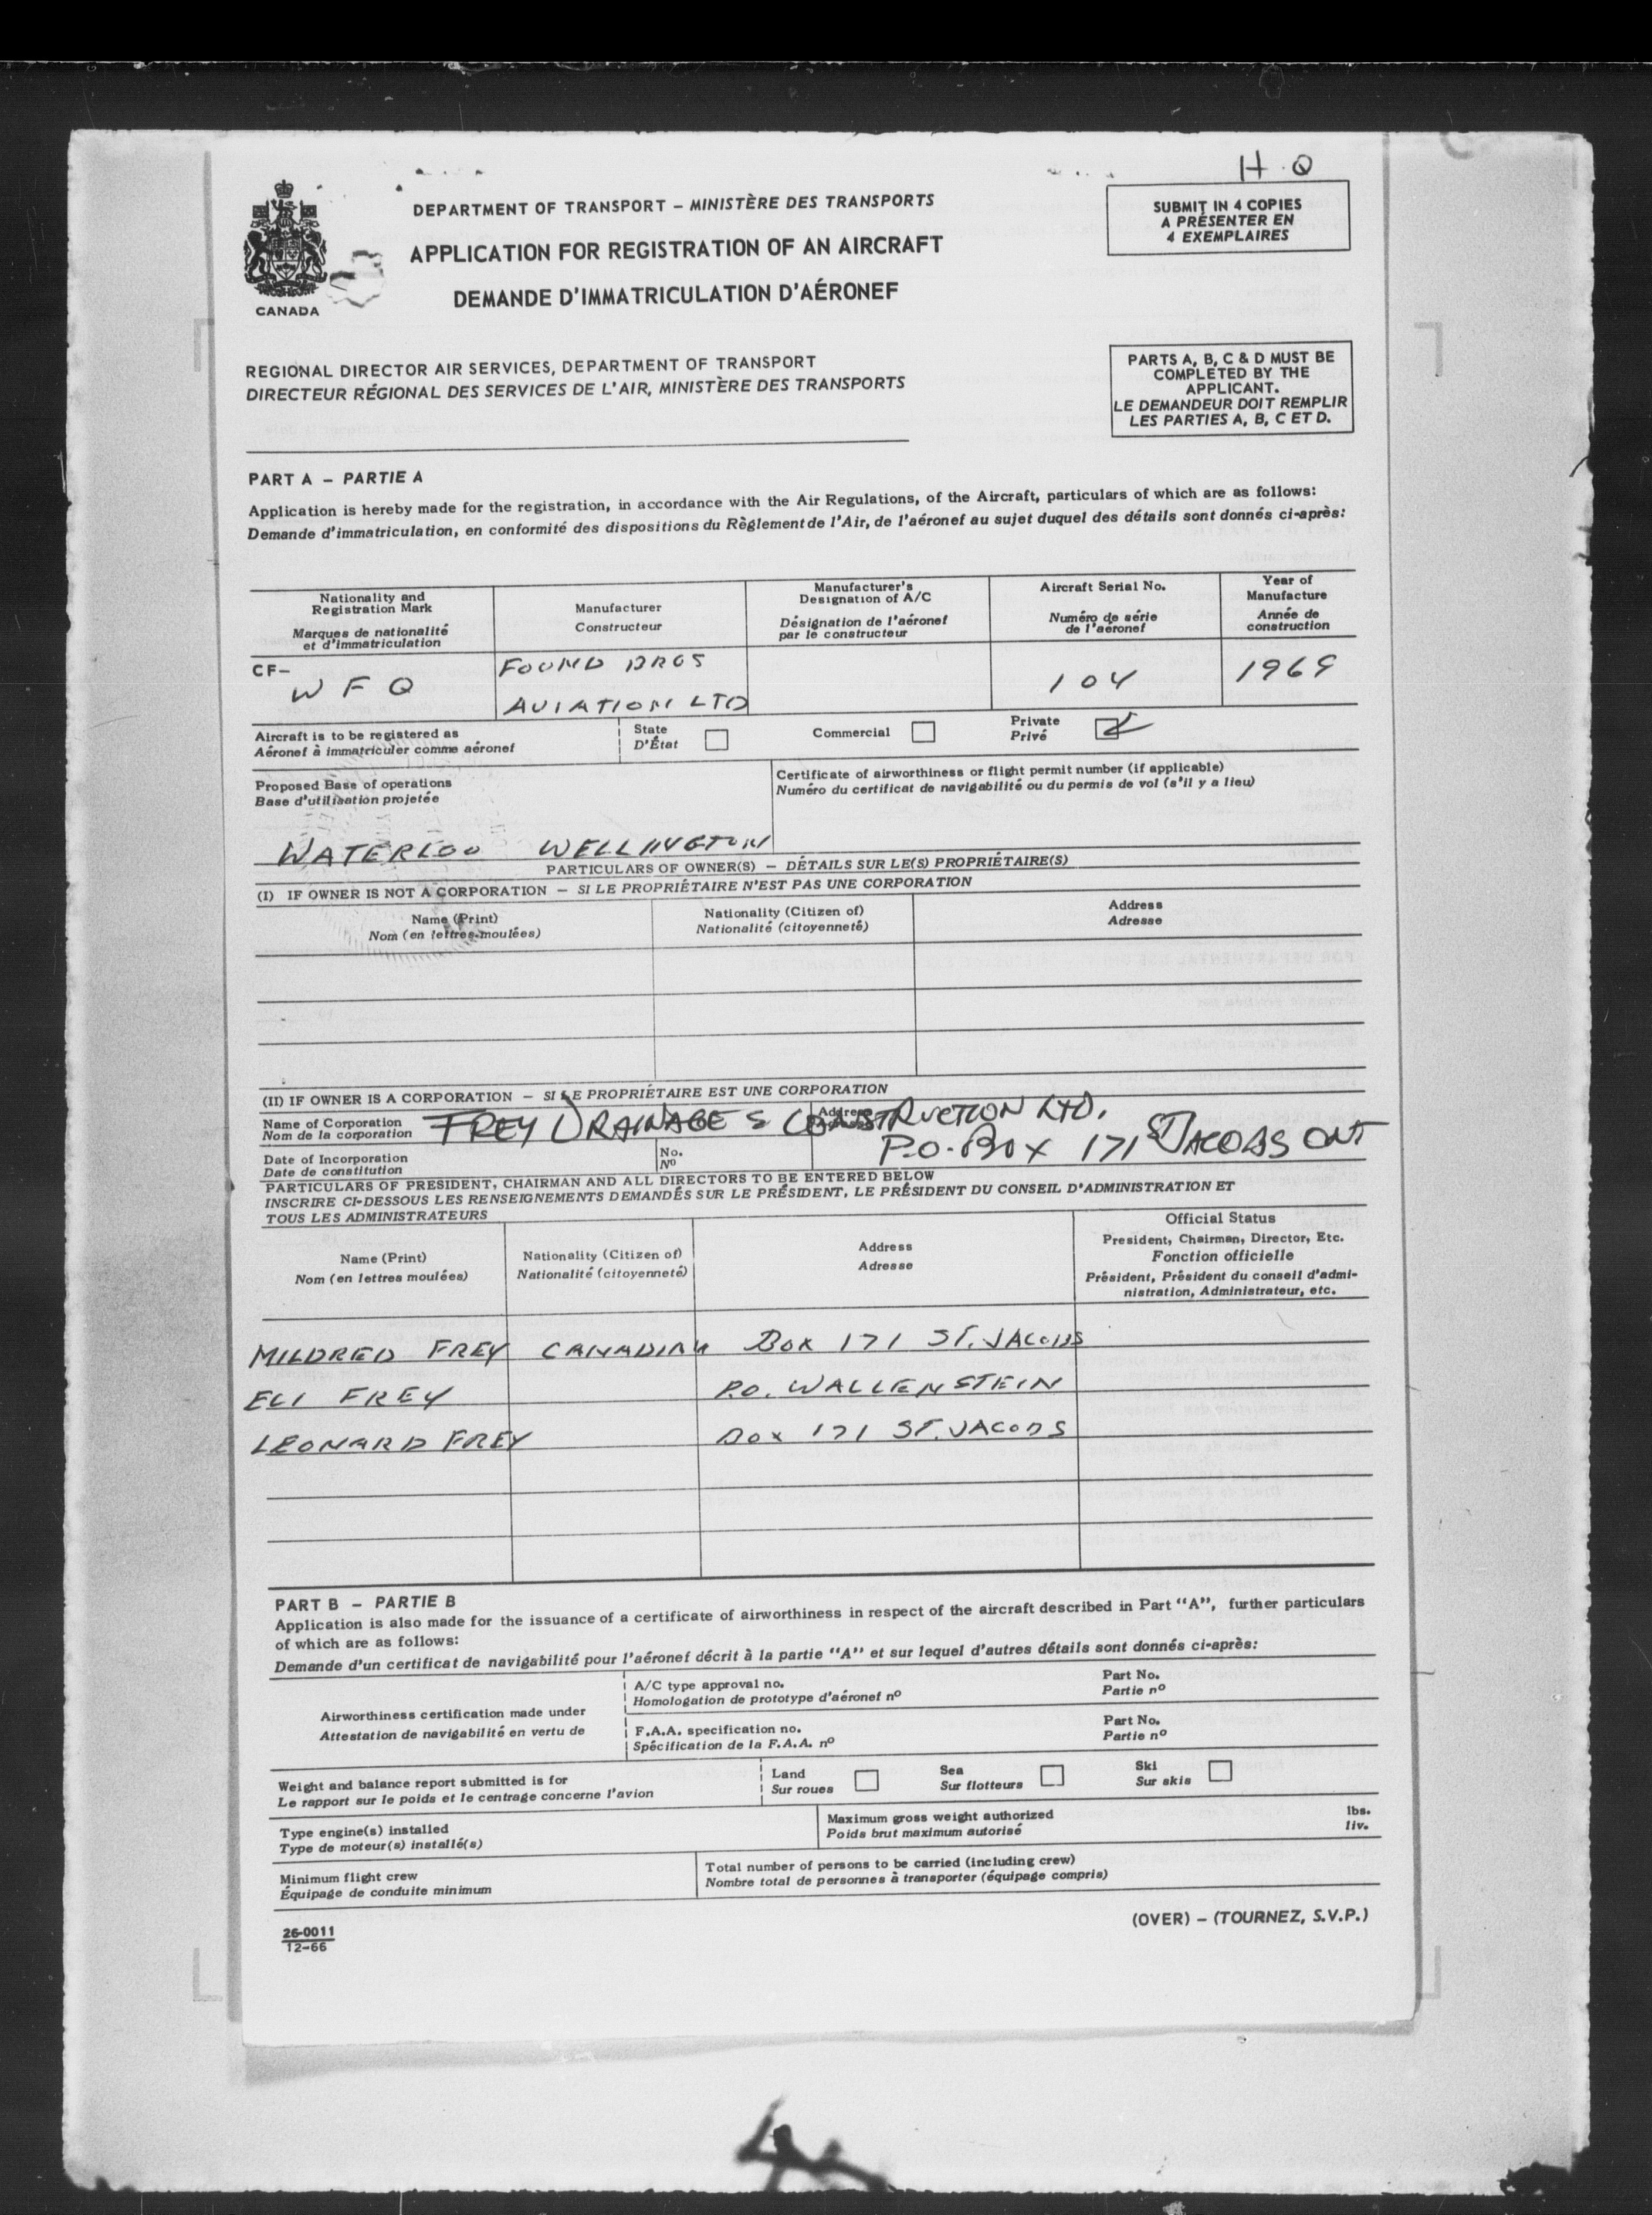 H.Q
DEPARTMENT OF TRANSPORT – MINISTÈRE DES TRANSPORTS
SUBMIT IN 4 COPIES
A PRÉSENTER EN
4 EXEMPLAIRES
APPLICATION FOR REGISTRATION OF AN AIRCRAFT
DEMANDE D'IMMATRICULATION D'AÉRONEF
CANADA
REGIONAL DIRECTOR AIR SERVICES, DEPARTMENT OF TRANSPORT
DIRECTEUR RÉGIONAL DES SERVICES DE L'AIR, MINISTÈRE DES TRANSPORTS
PARTS A, B, C & D MUST BE
COMPLETED BY THE
APPLICANT.
LE DEMANDEUR DOIT REMPLIR
LES PARTIES A, B, C ET D.
PART A – PARTIE A
Application is hereby made for the registration, in accordance with the Air Regulations, of the Aircraft, particulars of which are as follows:
Demande d'immatriculation, en conformité des dispositions du Règlement de l'Air, de l'aéronef au sujet duquel des détails sont donnés ci-après:
Nationality and
Registration Mark
Marques de nationalité
et d'immatriculation
Manufacturer
Constructeur
Manufacturer's
Designation of A/C
Désignation de l'aéronef
par le constructeur
Aircraft Serial No.
Numéro de série
de l'aéronef
Year of
Manufacture
Année de
construction
CF-
W F Q
FOUND BROS
AVIATION LTD
104
1969
Aircraft is to be registered as
Aéronef à immatriculer comme aéronef
State
D'État
Commercial
Private
Privé
Proposed Base of operations
Base d'utilisation projetée
WATERLOO WELLINGTON
Certificate of airworthiness or flight permit number (if applicable)
Numéro du certificat de navigabilité ou du permis de vol (s'il y a lieu)
PARTICULARS OF OWNER(S) – DÉTAILS SUR LE(S) PROPRIÉTAIRE(S)
(I) IF OWNER IS NOT A CORPORATION – SI LE PROPRIÉTAIRE N'EST PAS UNE CORPORATION
Name (Print)
Nom (en lettres moulées)
Nationality (Citizen of)
Nationalité (citoyenneté)
Address
Adresse
(II) IF OWNER IS A CORPORATION – SI LE PROPRIÉTAIRE EST UNE CORPORATION
Name of Corporation
Nom de la corporation
FREY DRAINAGE & CONSTRUCTION LTD.
Address
P.O. BOX 171 ST JACOBS ONT
Date of Incorporation
Date de constitution
No.
Nº
PARTICULARS OF PRESIDENT, CHAIRMAN AND ALL DIRECTORS TO BE ENTERED BELOW
INSCRIRE CI-DESSOUS LES RENSEIGNEMENTS DEMANDÉS SUR LE PRÉSIDENT, LE PRÉSIDENT DU CONSEIL D'ADMINISTRATION ET
TOUS LES ADMINISTRATEURS
Name (Print)
Nom (en lettres moulées)
Nationality (Citizen of)
Nationalité (citoyenneté)
Address
Adresse
Official Status
President, Chairman, Director, Etc.
Fonction officielle
Président, Président du conseil d'admi-
nistration, Administrateur, etc.
MILDRED FREY CANADIAN BOX 171 ST. JACOBS
ELI FREY P.O. WALLENSTEIN
LEONARD FREY BOX 171 ST. JACOBS
PART B – PARTIE B
Application is also made for the issuance of a certificate of airworthiness in respect of the aircraft described in Part "A", further particulars
of which are as follows:
Demande d'un certificat de navigabilité pour l'aéronef décrit à la partie "A" et sur lequel d'autres détails sont donnés ci-après:
Airworthiness certification made under
Attestation de navigabilité en vertu de
A/C type approval no.
Homologation de prototype d'aéronef nº
Part No.
Partie nº
F.A.A. specification no.
Spécification de la F.A.A. nº
Part No.
Partie nº
Weight and balance report submitted is for
Le rapport sur le poids et le centrage concerne l'avion
Land
Sur roues
Sea
Sur flotteurs
Ski
Sur skis
Type engine(s) installed
Type de moteur(s) installé(s)
Maximum gross weight authorized
Poids brut maximum autorisé
lbs.
liv.
Minimum flight crew
Équipage de conduite minimum
Total number of persons to be carried (including crew)
Nombre total de personnes à transporter (équipage compris)
26-0011
12-66
(OVER) – (TOURNEZ, S.V.P.)